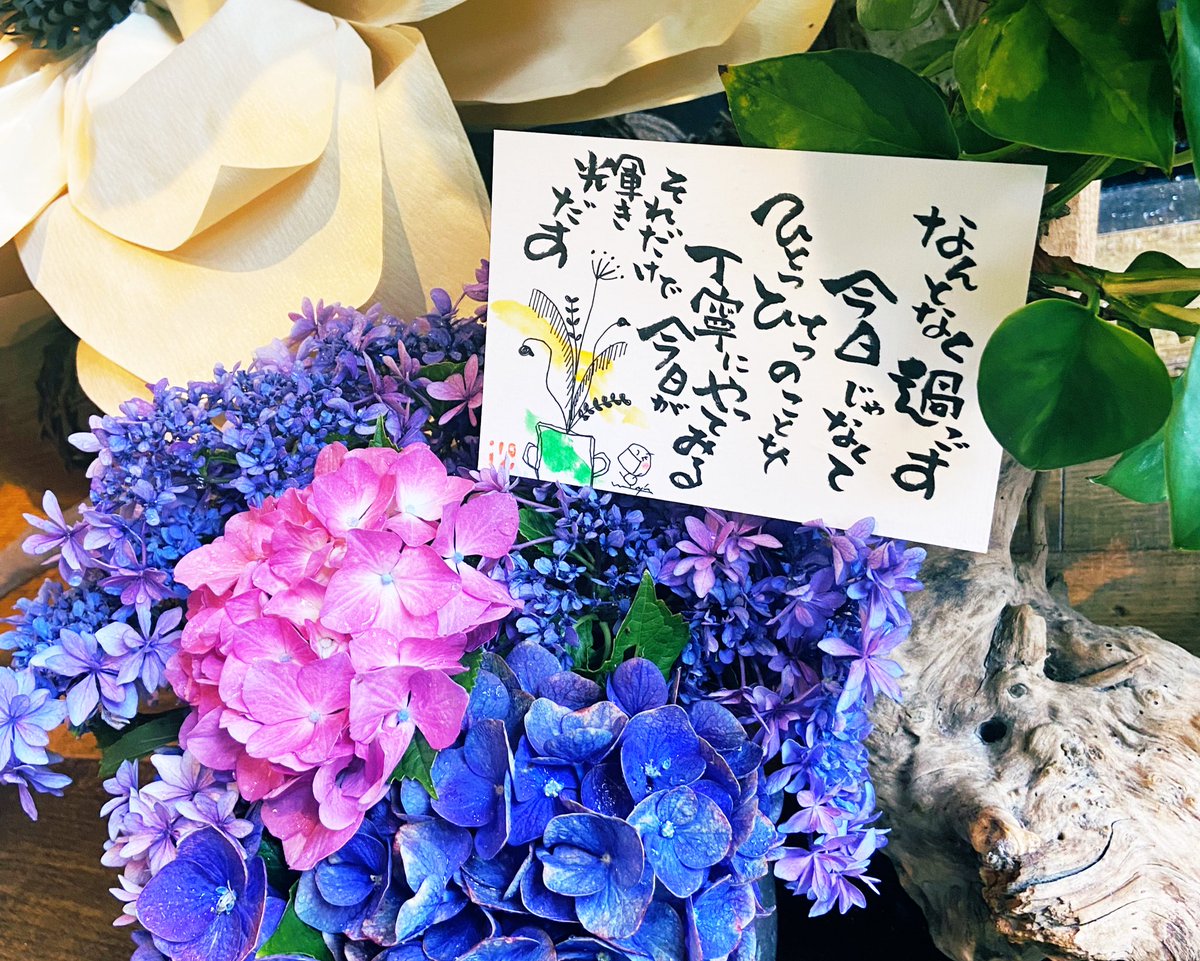 なんとなく過ごす
今日じゃなくて
ひとつひとつのことを
丁寧にやってみる
それだけで今日が
輝き
光だす